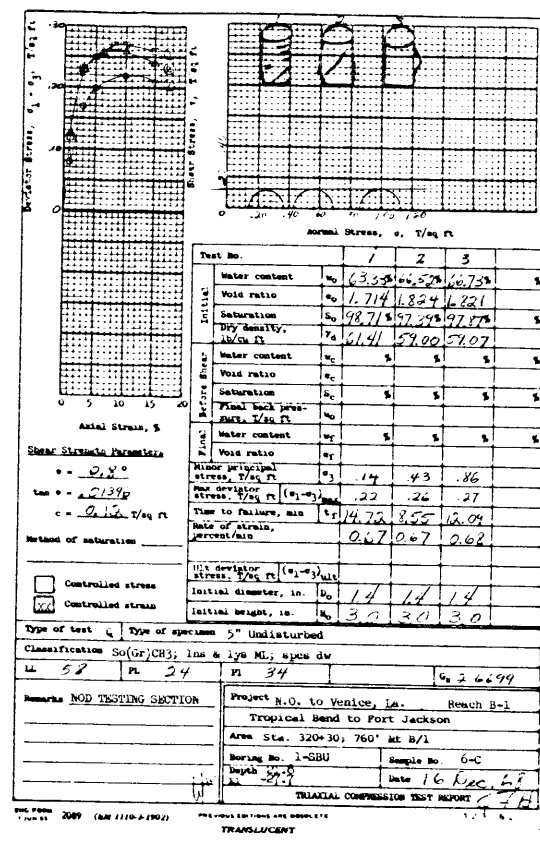 .30
.20
.10
0
Deviator Stress, σ1 - σ3, T/sq ft
0 5 10 15 20
Axial Strain, %
Shear Stress, τ, T/sq ft
0 .20 .40 .60
Normal Stress, σ, T/sq ft
Shear Strength Parameters
φ = 0.8°
tan φ = .01396
c = 0.12 T/sq ft
Method of saturation
Controlled stress
Controlled strain
Test No. 1 2 3
Initial
Water content w0 63.33% 66.52% 66.73% %
Void ratio e0 1.714 1.824 1.821
Saturation S0 98.71% 97.39% 97.87% %
Dry density, lb/cu ft γd 61.41 59.00 59.07
Before Shear
Water content wc % % % %
Void ratio ec
Saturation Sc % % % %
Final back pressure, T/sq ft u0
Final
Water content wf % % % %
Void ratio ef
Minor principal stress, T/sq ft σ3 .14 .43 .86
Max deviator stress, T/sq ft (σ1-σ3)max .22 .26 .27
Time to failure, min tf 14.72 8.55 12.09
Rate of strain, percent/min 0.67 0.67 0.68
Ult deviator stress, T/sq ft (σ1-σ3)ult
Initial diameter, in. D0 1.4 1.4 1.4
Initial height, in. H0 3.0 3.0 3.0
Type of test Q Type of specimen 5" Undisturbed
Classification So(Gr)CH3; lns & lys ML; spcs dw
LL 58 PL 24 PI 34 Gs 2.6699
Remarks NOD TESTING SECTION
Project N.O. to Venice, La. Reach B-1
Tropical Bend to Fort Jackson
Area Sta. 320+30; 760' Lt B/l
Boring No. 1-SBU Sample No. 6-C
Depth El Date 16 Dec. 68
TRIAXIAL COMPRESSION TEST REPORT
ENG FORM 1 JUN 65 2089 (EM 1110-2-1902) PREVIOUS EDITIONS ARE OBSOLETE
TRANSLUCENT